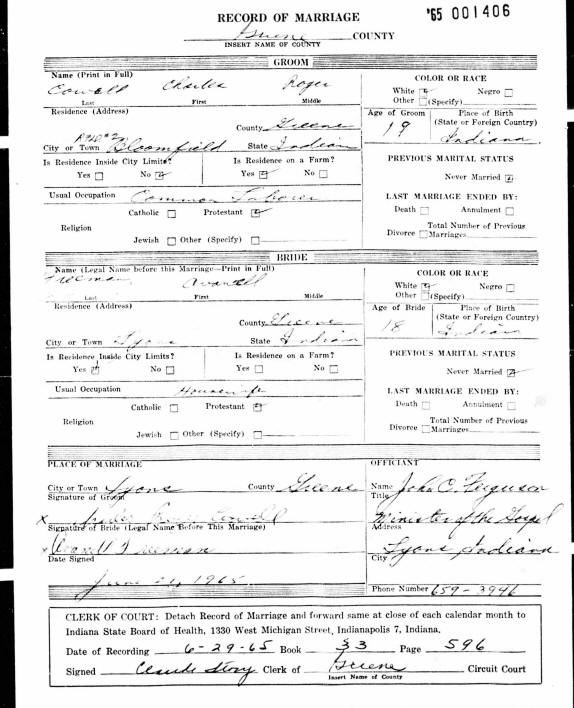 RECORD OF MARRIAGE '65 001406
Greene COUNTY
INSERT NAME OF COUNTY
GROOM
Name (Print in Full)
Cowell Charles Roger
Last First Middle
COLOR OR RACE
White ☑ Negro ☐
Other ☐ (Specify)
Residence (Address)
County Greene
City or Town Bloomfield State Indian
Age of Groom 19
Place of Birth
(State or Foreign Country)
Indiana
Is Residence Inside City Limits?
Yes ☐ No ☑
Is Residence on a Farm?
Yes ☑ No ☐
PREVIOUS MARITAL STATUS
Never Married ☑
Usual Occupation Common Laborer
LAST MARRIAGE ENDED BY:
Death ☐ Annulment ☐
Divorce ☐ Total Number of Previous
Marriages
Religion
Catholic ☐ Protestant ☑
Jewish ☐ Other (Specify) ☐
BRIDE
Name (Legal Name before this Marriage—Print in Full)
Freeman Avanell
Last First Middle
COLOR OR RACE
White ☑ Negro ☐
Other ☐ (Specify)
Residence (Address)
County Greene
City or Town Lyons State Indian
Age of Bride 18
Place of Birth
(State or Foreign Country)
Indiana
Is Residence Inside City Limits?
Yes ☑ No ☐
Is Residence on a Farm?
Yes ☐ No ☐
PREVIOUS MARITAL STATUS
Never Married ☑
Usual Occupation Housewife
LAST MARRIAGE ENDED BY:
Death ☐ Annulment ☐
Divorce ☐ Total Number of Previous
Marriages
Religion
Catholic ☐ Protestant ☑
Jewish ☐ Other (Specify) ☐
PLACE OF MARRIAGE
City or Town Lyons County Greene
Signature of Groom
X Cowell
Signature of Bride (Legal Name Before This Marriage)
x Avanell Freeman
Date Signed
June 24, 1965
OFFICIANT
Name John C. Ferguson
Title
Minister of the Gospel
Address
Lyons Indiana
City
Phone Number 659-3946
CLERK OF COURT: Detach Record of Marriage and forward same at close of each calendar month to
Indiana State Board of Health, 1330 West Michigan Street, Indianapolis 7, Indiana.
Date of Recording 6-29-65 Book 33 Page 596
Signed Claude Story Clerk of Greene Circuit Court
Insert Name of County